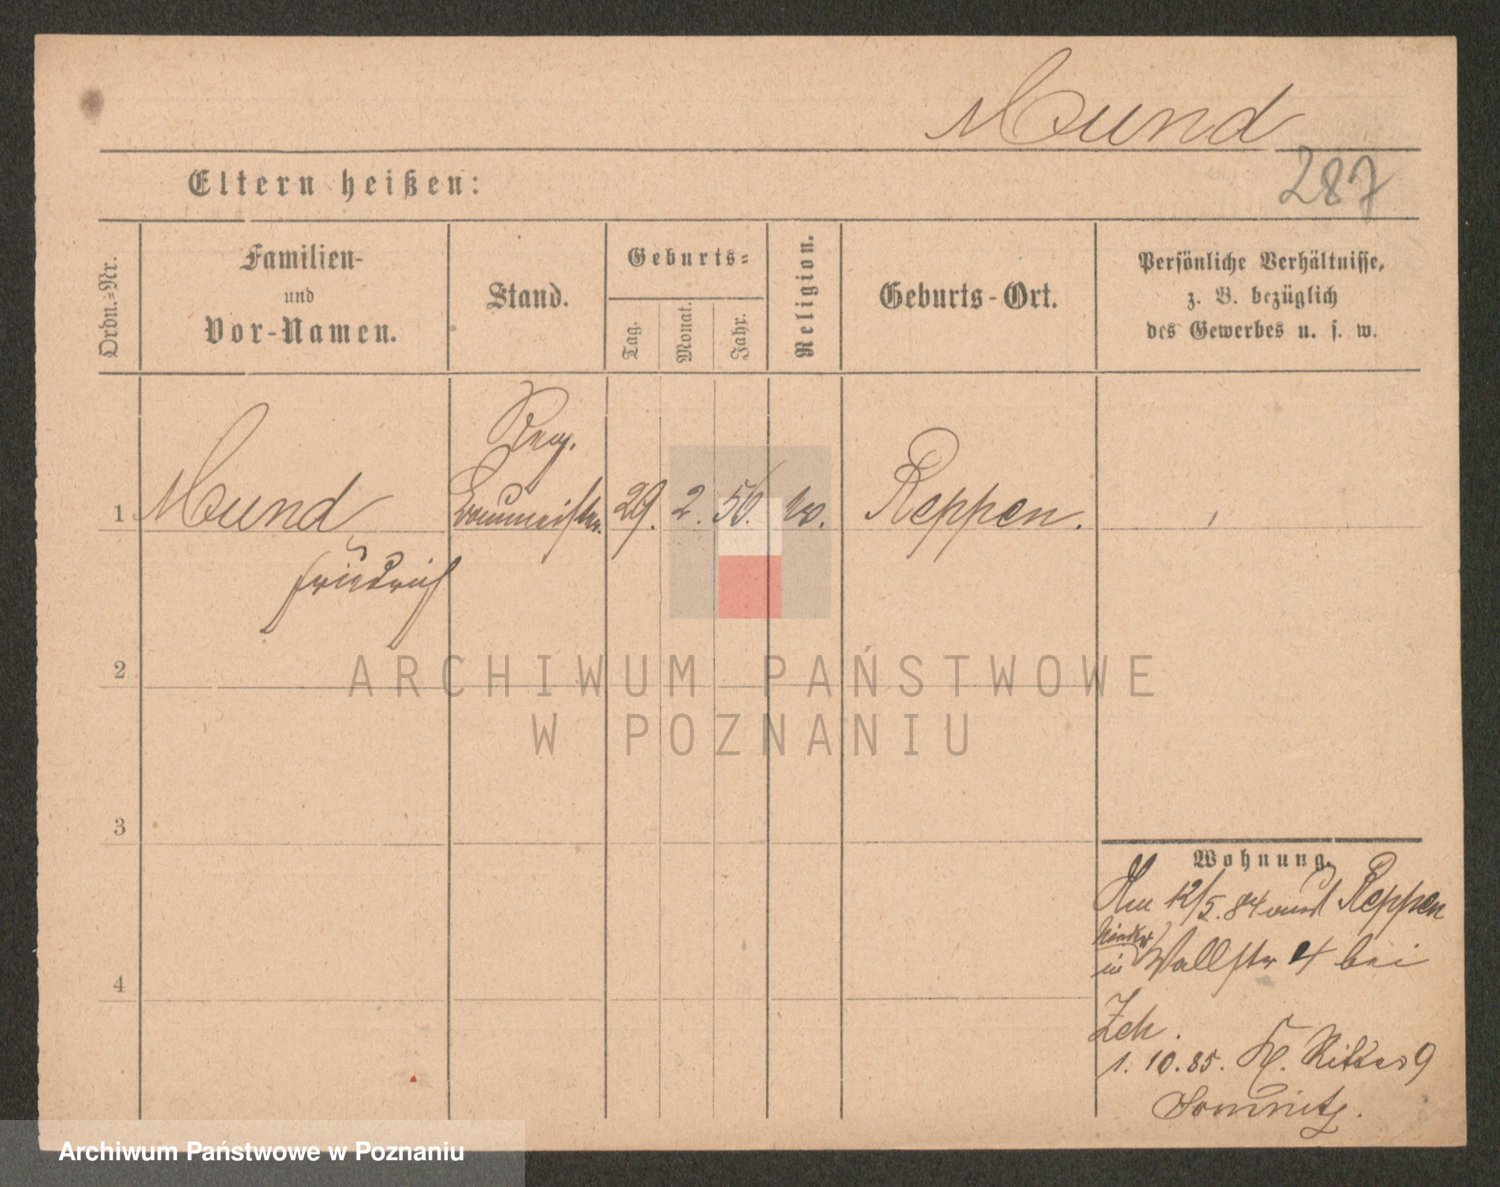 Mund
287
Eltern heißen:
Ordn.-Nr.
Familien-
und
Vor-Namen.
Stand.
Geburts-
Tag.
Monat.
Jahr.
Religion.
Geburts-Ort.
Persönliche Verhältnisse,
z. B. bezüglich
des Gewerbes u. s. w.
Reg.
1 Mund Baumeister. 29. 2. 56. ev. Reppen.
Friedrich
2
3
4
Wohnung.
Am 12/5. 84 aus Reppen
in Wallstr 4 bei
Zeh.
1. 10. 85. Kl. Ritter 9
ARCHIWUM PAŃSTWOWE
W POZNANIU
Archiwum Państwowe w Poznaniu